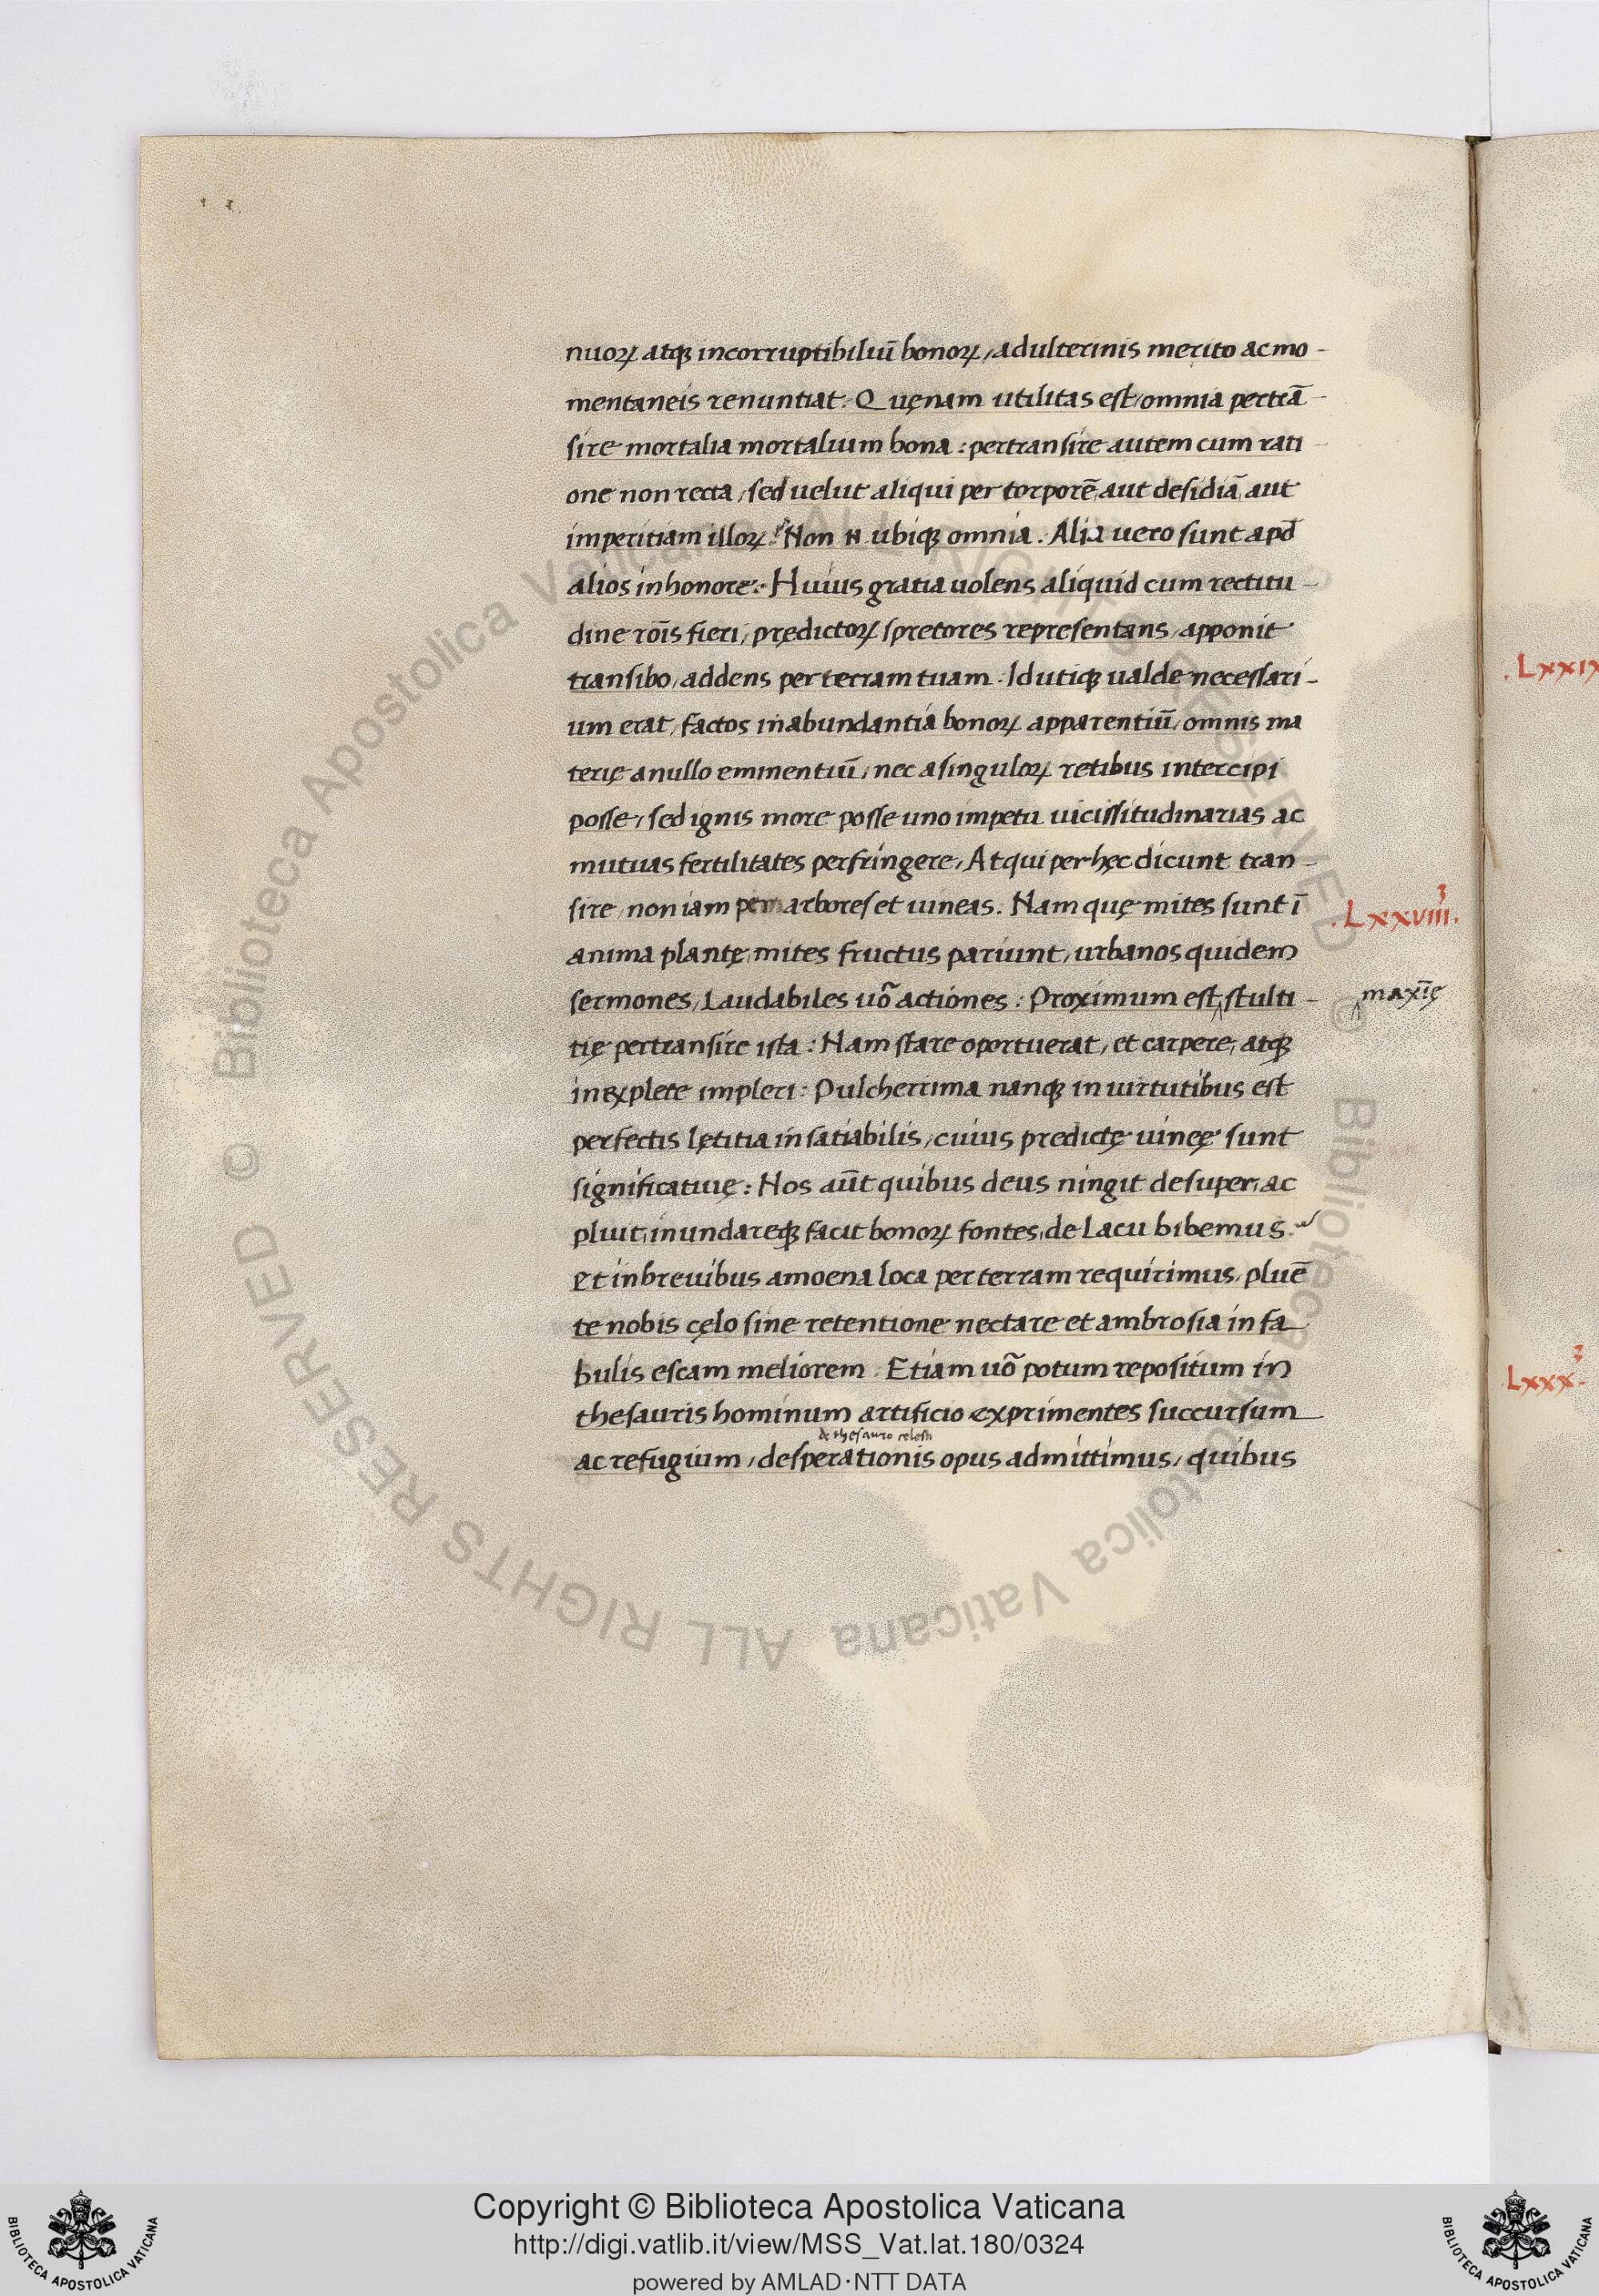 nuoꝝ atqꝫ incorruptibiliū bonoꝝ, adulterinis merito ac mo-
mentaneis renuntiat. Quęnam utilitas est, omnia pertrā-
sire mortalia mortalium bona: pertransire autem cum rati-
one non recta, sed uelut aliqui per torporē, aut desidiā, aut
imperitiam illoꝝ? Non N ubiqꝫ omnia. Alia uero sunt apd̄
alios in honore: Huius gratia uolens aliquid cum rectitu-
dine rōis fieri, prędictoꝝ spretores representans, apponit
transibo, addens per terram tuam. Id utiqꝫ ualde necessari-
um erat, factos in abundantia bonoꝝ apparentiū, omnis ma
terię a nullo eminentiū, nec a singuloꝝ retibus intercipi
posse, sed ignis more posse uno impetu uicissitudinarias ac
mutuas fertilitates perfringere, Atqui per hęc dicunt tran-
sire, non iam per arbores et uineas. Nam quę mites sunt ī
.Lxxviii.
anima plantę, mites fructus pariunt, urbanos quidem
sermones, Laudabiles uō actiones: Proximum est stulti-
maxīę
tię pertransire ista: Nam stare oportuerat, et carpere, atqꝫ
inexplete impleri: Pulcherrima nanqꝫ in uirtutibus est
perfectis lętitia insatiabilis, cuius predictę uineę sunt
significatiuę: Nos aūt quibus deus ningit desuper, ac
pluit, inundareqꝫ facit bonoꝝ fontes, de Lacu bibemus.
et in breuibus amoena loca per terram requirimus, pluē
te nobis cęlo sine retentione nectare et ambrosia in fa
bulis escam meliorem. Etiam uō potum repositum in
thesauris hominum artificio exprimentes succursum
de thesauro celesti
ac refugium, desperationis opus admittimus, quibus
.Lxxix
Lxxx.
Copyright © Biblioteca Apostolica Vaticana
http://digi.vatlib.it/view/MSS_Vat.lat.180/0324
powered by AMLAD·NTT DATA
BIBLIOTECA APOSTOLICA VATICANA
BIBLIOTECA APOSTOLICA VATICANA
© Biblioteca Apostolica Vaticana ALL RIGHTS RESERVED © Biblioteca Apostolica Vaticana ALL RIGHTS RESERVED